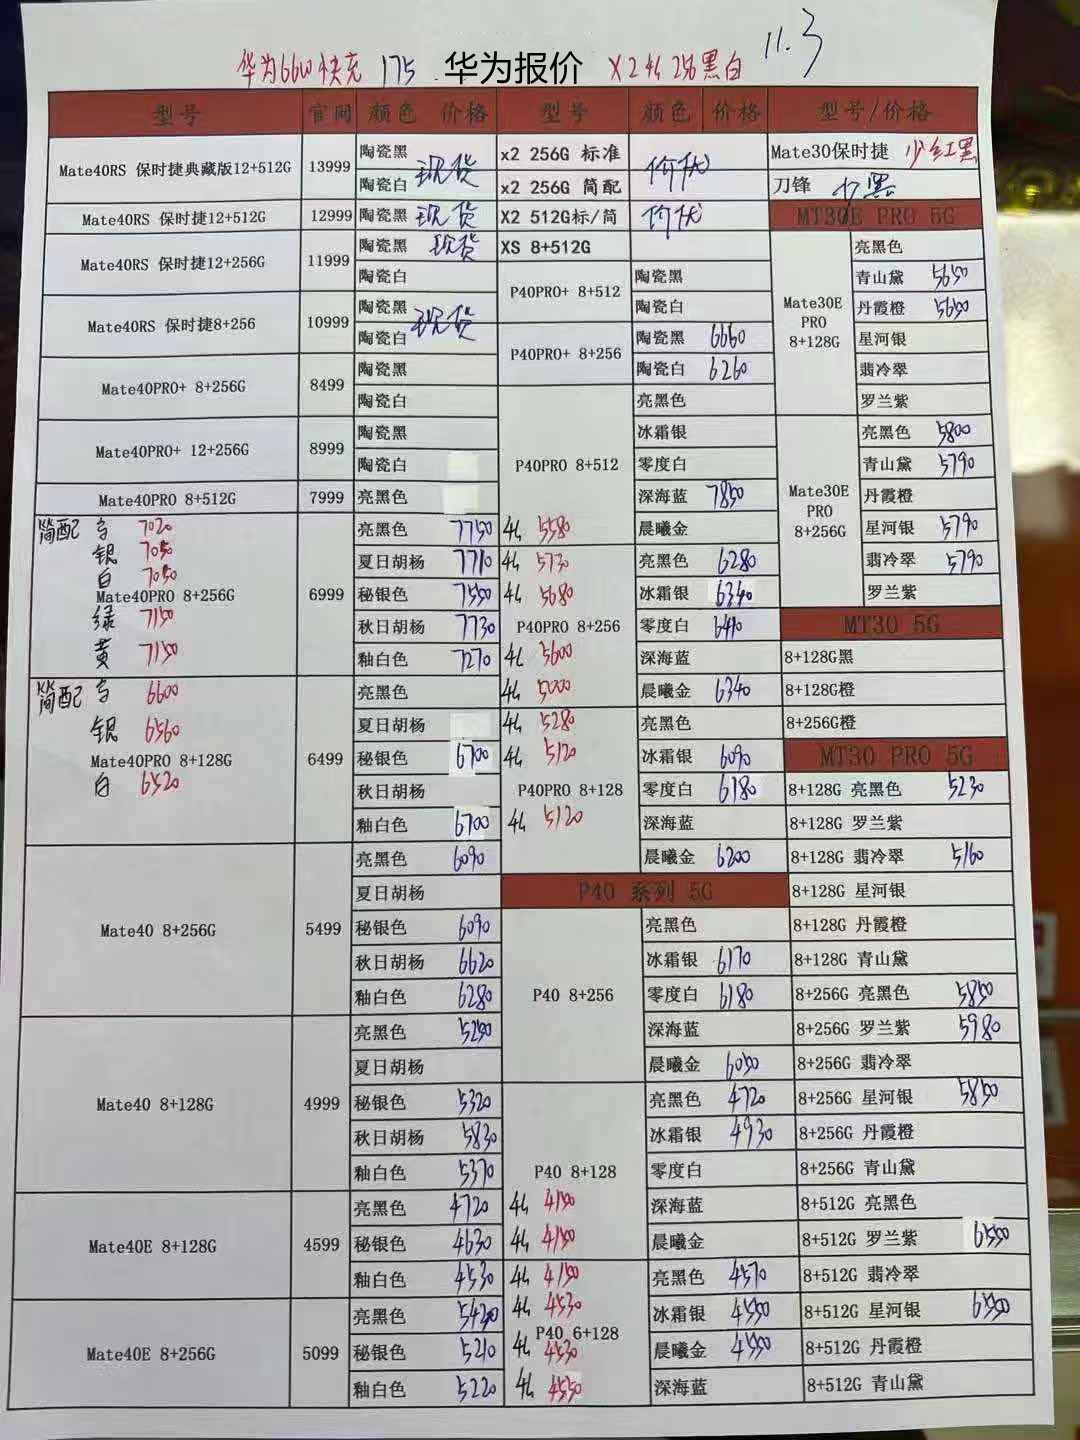 11.3
华为66W快充 175 华为报价 X2 4G 256黑白
型号 官网 颜色 价格 型号 颜色 价格 型号/价格
Mate40RS 保时捷典藏版12+512G 13999 陶瓷黑 现货 x2 256G 标准 价优 Mate30保时捷 少红黑
陶瓷白 x2 256G 简配 刀锋 少黑
Mate40RS 保时捷12+512G 12999 陶瓷黑 现货 X2 512G标/简 价优 MT30E PRO 5G
Mate40RS 保时捷12+256G 11999 陶瓷黑 现货 XS 8+512G 亮黑色
陶瓷白 P40PRO+ 8+512 陶瓷黑 青山黛 5650
Mate40RS 保时捷8+256 10999 陶瓷黑 现货 陶瓷白 Mate30E PRO 8+128G 丹霞橙 5650
陶瓷白 P40PRO+ 8+256 陶瓷黑 6660 星河银
Mate40PRO+ 8+256G 8499 陶瓷黑 陶瓷白 6260 翡冷翠
陶瓷白 亮黑色 罗兰紫
Mate40PRO+ 12+256G 8999 陶瓷黑 冰霜银 亮黑色 5800
陶瓷白 P40PRO 8+512 零度白 青山黛 5790
Mate40PRO 8+512G 7999 亮黑色 深海蓝 7850 Mate30E PRO 8+256G 丹霞橙
简配 7020 亮黑色 7750 4G 5580 晨曦金 星河银 5790
银 7050 夏日胡杨 7710 4G 5730 亮黑色 6280 翡冷翠 5790
白 7050 Mate40PRO 8+256G 6999 秘银色 7550 4G 5680 冰霜银 6340 罗兰紫
绿 7150 秋日胡杨 7730 P40PRO 8+256 零度白 6410 MT30 5G
黄 7150 釉白色 7270 4G 5600 深海蓝 8+128G黑
简配 6600 亮黑色 4G 晨曦金 6340 8+128G橙
银 6560 夏日胡杨 4G 5280 亮黑色 8+256G橙
Mate40PRO 8+128G 6499 秘银色 6700 4G 5120 冰霜银 6090 MT30 PRO 5G
白 6520 秋日胡杨 P40PRO 8+128 零度白 6180 8+128G 亮黑色 5230
釉白色 6700 4G 5120 深海蓝 8+128G 罗兰紫
亮黑色 6090 晨曦金 6200 8+128G 翡冷翠 5160
夏日胡杨 P40 系列 5G 8+128G 星河银
Mate40 8+256G 5499 秘银色 6090 亮黑色 8+128G 丹霞橙
秋日胡杨 6620 冰霜银 6170 8+128G 青山黛
釉白色 6280 P40 8+256 零度白 6180 8+256G 亮黑色 5850
亮黑色 5250 深海蓝 8+256G 罗兰紫 5980
夏日胡杨 晨曦金 6050 8+256G 翡冷翠
Mate40 8+128G 4999 秘银色 5320 亮黑色 4720 8+256G 星河银 5850
秋日胡杨 5830 冰霜银 4930 8+256G 丹霞橙
釉白色 5370 P40 8+128 零度白 8+256G 青山黛
亮黑色 4720 4G 4150 深海蓝 8+512G 亮黑色
Mate40E 8+128G 4599 秘银色 4630 4G 4150 晨曦金 8+512G 罗兰紫 6550
釉白色 4530 4G 4150 亮黑色 4570 8+512G 翡冷翠
亮黑色 5430 4G 4530 冰霜银 4550 8+512G 星河银 6550
Mate40E 8+256G 5099 秘银色 5210 4G P40 6+128 4530 晨曦金 4550 8+512G 丹霞橙
釉白色 5220 4G 4550 深海蓝 8+512G 青山黛